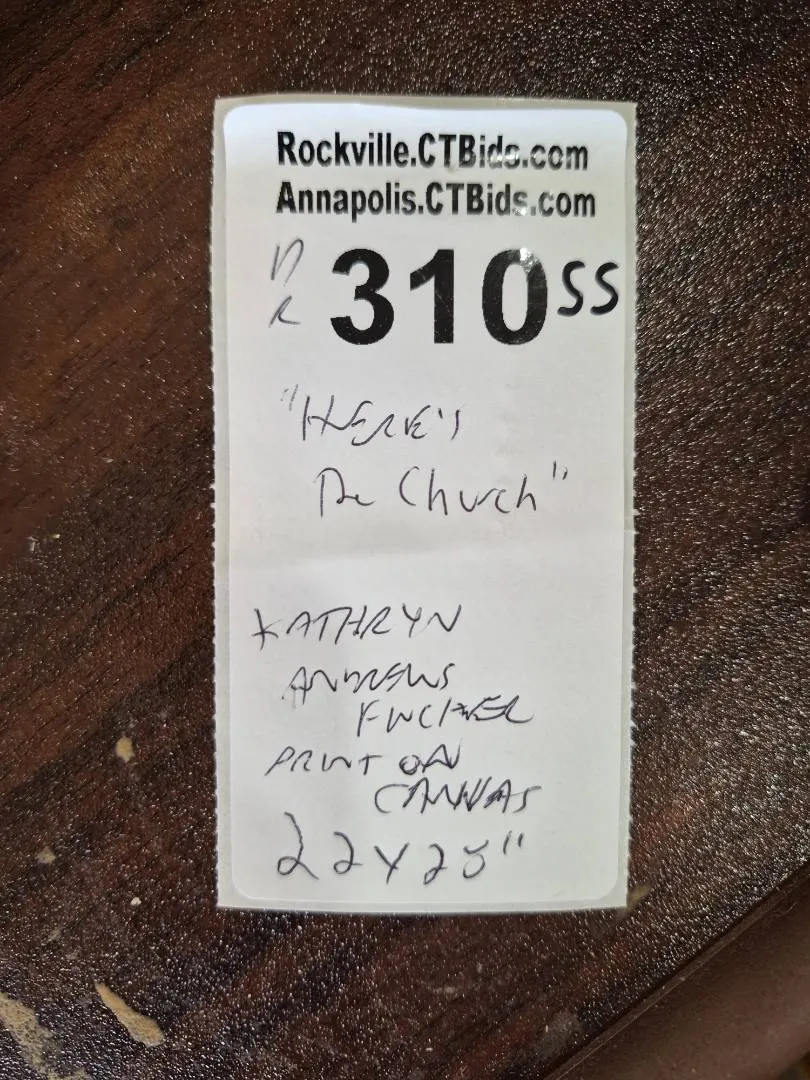 Rockville.CTBids.com
Annapolis.CTBids.com
DR 310 SS
"HERE'S
The Church"
KATHRYN
ANDREWS
FINCHER
PRINT ON
CANVAS
22X28"